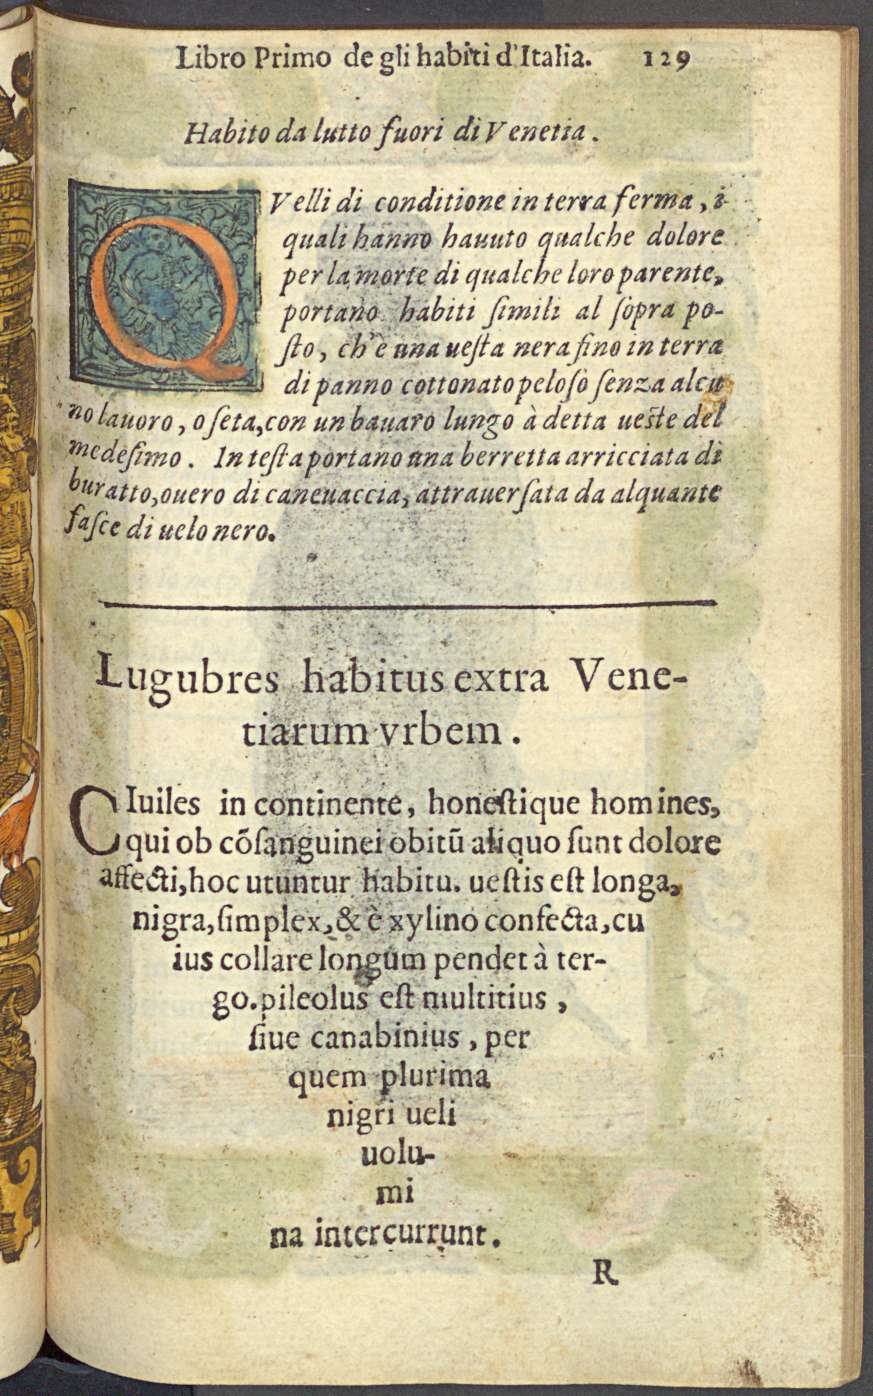 Libro Primo de gli habiti d'Italia. 129
Habito da lutto fuori di Venetia.
QVelli di conditione in terra ferma, i
quali hanno hauuto qualche dolore
per la morte di qualche loro parente,
portano habiti ſimili al ſopra po-
ſto, ch'è una ueſta nera ſino in terra
di panno cottonato peloſo ſenza alcu
no lauoro, o ſeta, con un bauaro lungo à detta ueſte del
medeſimo. In teſta portano una berretta arricciata di
buratto, ouero di caneuaccia, attrauerſata da alquante
faſce di uelo nero.
Lugubres habitus extra Vene-
tiarum vrbem.
CIuiles in continente, honeſtique homines,
qui ob cõſanguinei obitũ aliquo ſunt dolore
affecti, hoc utuntur habitu. ueſtis eſt longa,
nigra, ſimplex, & è xylino confecta, cu
ius collare longum pendet à ter-
go. pileolus eſt multitius,
ſiue canabinius, per
quem plurima
nigri ueli
uolu-
mi
na intercurrunt.
R